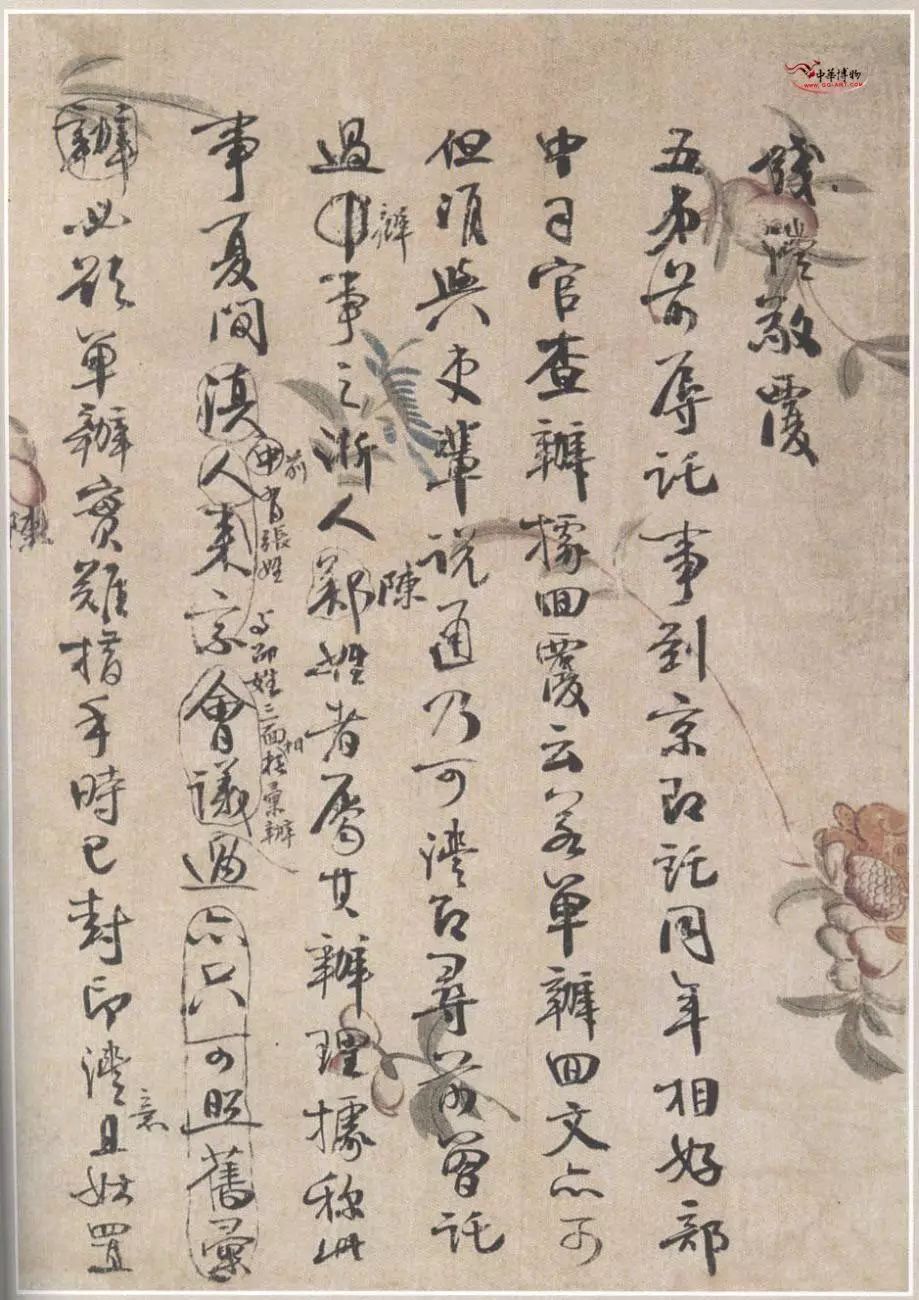 中華博物
www.gg-art.com
錢灃敬覆
五弟前辱託事到京即託同年相好部
中司官查辦據回覆云若單辦回文亦可
但須與吏輩說通乃可灃即尋前曾託
過申辦事之浙人鄭陳姓者屬其辦理據称此
事夏間滇人來京會議過亦只可照舊彙
前申書張姓
姓三面
彙辦
辦必欲單辦實難措手時已封印灃意且姑置